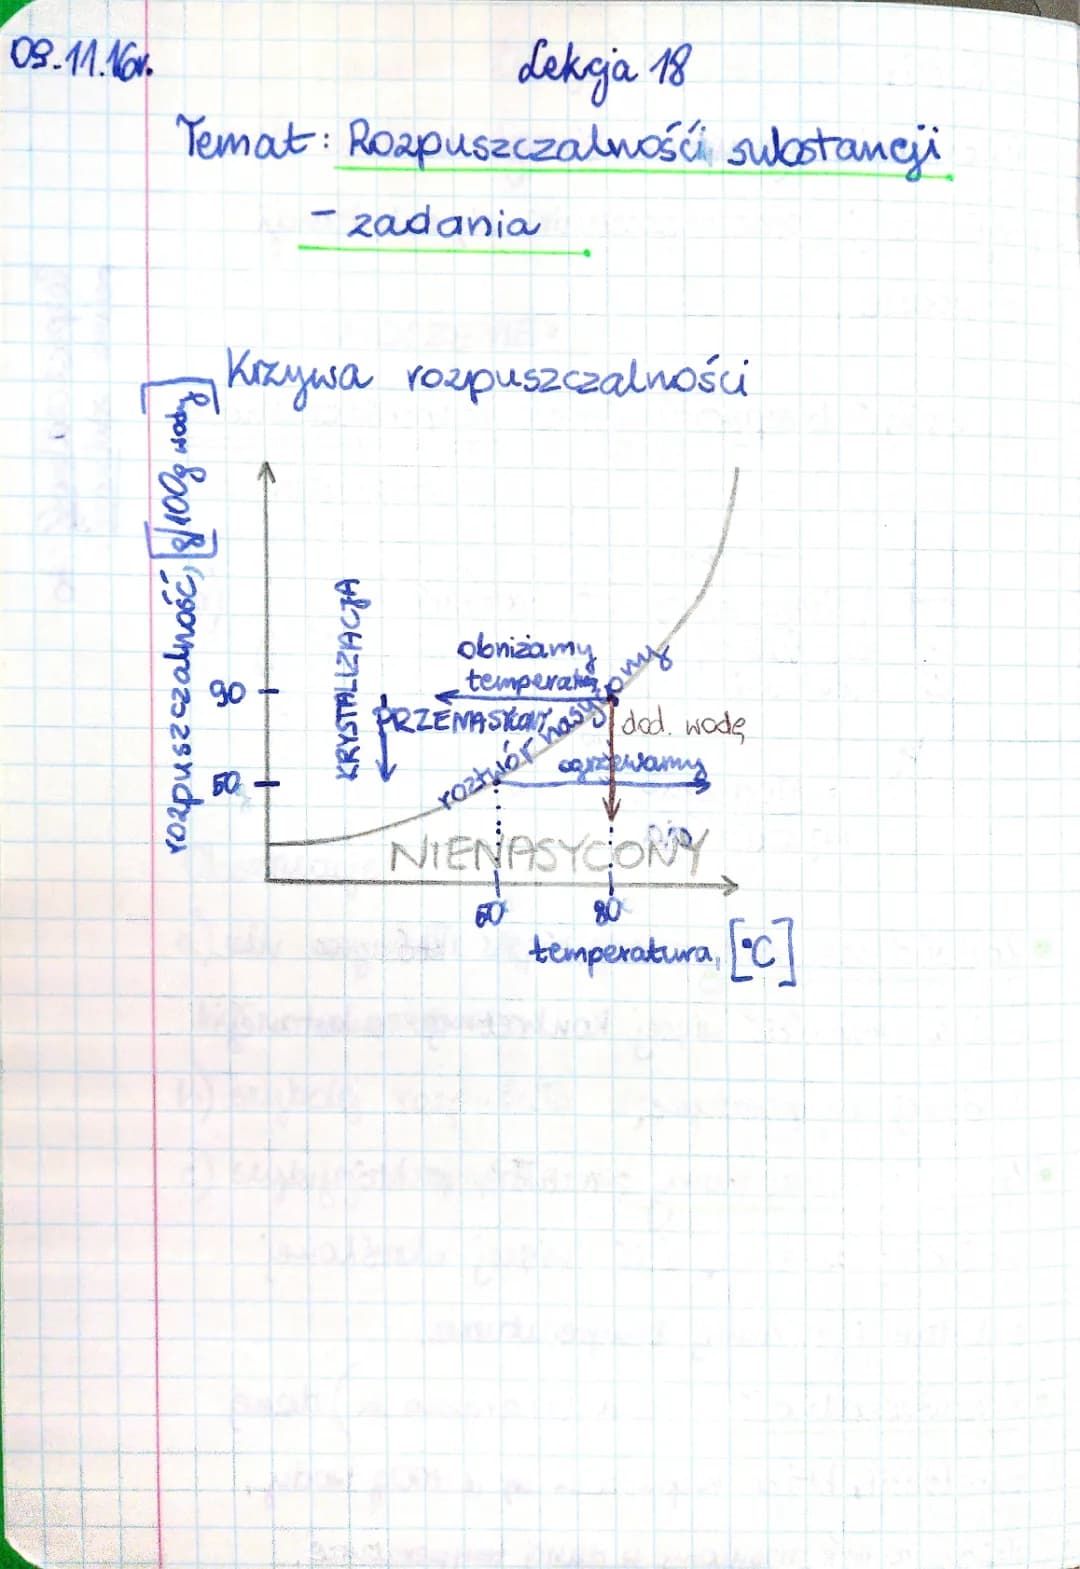 09.11.16r.
Lekcja 18
Temat: Rozpuszczalność substancji
- zadania
Krzywa rozpuszczalności
rozpuszczalność, [g/100g wody]
KRYSTALIZACJA
obniżamy
temperaturę
90
PRZENASYCONY
roztwór nasycony
dod. wodę
ogrzewamy
50
NIENASYCONY
60
80
temperatura, [°C]